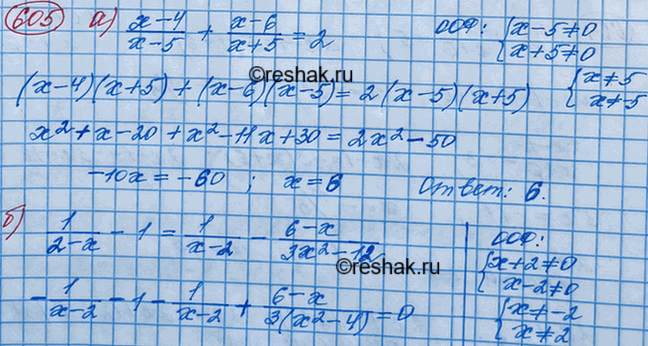 605 а) (x-4)/(x-5) + (x-6)/(x+5) = 2 ООФ: { x-5≠0
{ x+5≠0
©reshak.ru
(x-4)(x+5) + (x-6)(x-5) = 2(x-5)(x+5) { x≠5
{ x≠-5
x²+x-20+x²-11x+30 = 2x²-50
-10x = -60 ; x = 6 Ответ: 6.
б) 1/(2-x) - 1 = 1/(x-2) - (6-x)/(3x²-12) ООФ:
©reshak.ru
{ x+2≠0
{ x-2≠0
-1/(x-2) - 1 - 1/(x-2) + (6-x)/(3(x²-4)) = 0 { x≠-2
{ x≠2